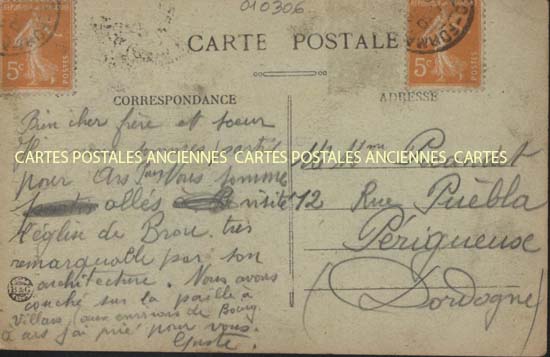 010306
5c
POSTES
5c
POSTES
CARTE POSTALE
CORRESPONDANCE
ADRESSE
Bien cher frère et soeur
CARTES POSTALES ANCIENNES CARTES POSTALES ANCIENNES CARTES
pour Ars Nous sommes
allés visité
l'église de Brou très
remarquable par son
architecture. Nous avons
couché sur la paille à
Villars (aux environs de Bourg
à ars j'ai prié pour vous.
M. Mme
12 Rue Puébla
Périgueux
(Dordogne)